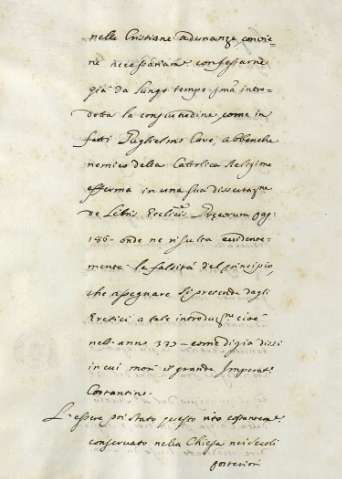 nelle Cristiane adunanze convie-
ne necessariam.e confessarne
già da lungo tempo p̃ma intro-
dotta la consuetudine come in
fatti Guglielmo Cave, abbenche
nemico della Cattolica Religione
afferma in una sua dissertaz.ne
de Libris Eccl.icis Græcorum pag:
186- onde ne risulta evidente-
mente la falsità del principio,
che assegnare si pretende dagli
Eretici a tale introduz.ne cioè
nell'anno 373- come di già dissi
in cui morì il grande Imperat.e
Costantino.
L'essere poi stato questo rito
conservato nella Chiesa ne i secoli
posteriori